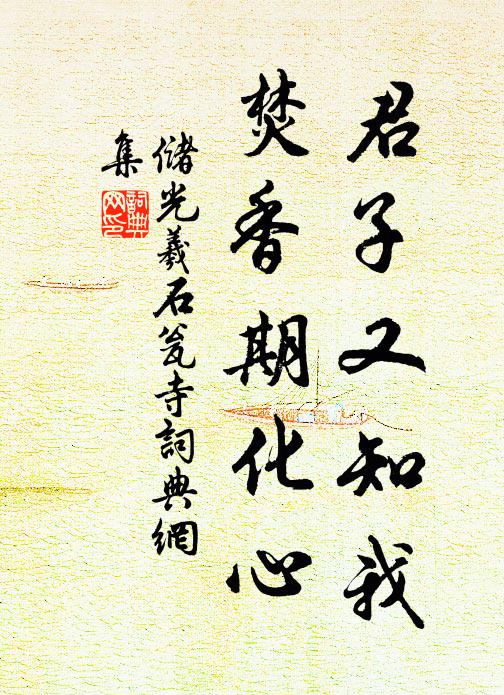 君子又知我
焚香期化心
儲光羲石瓮寺詞典網
集
詞典網印